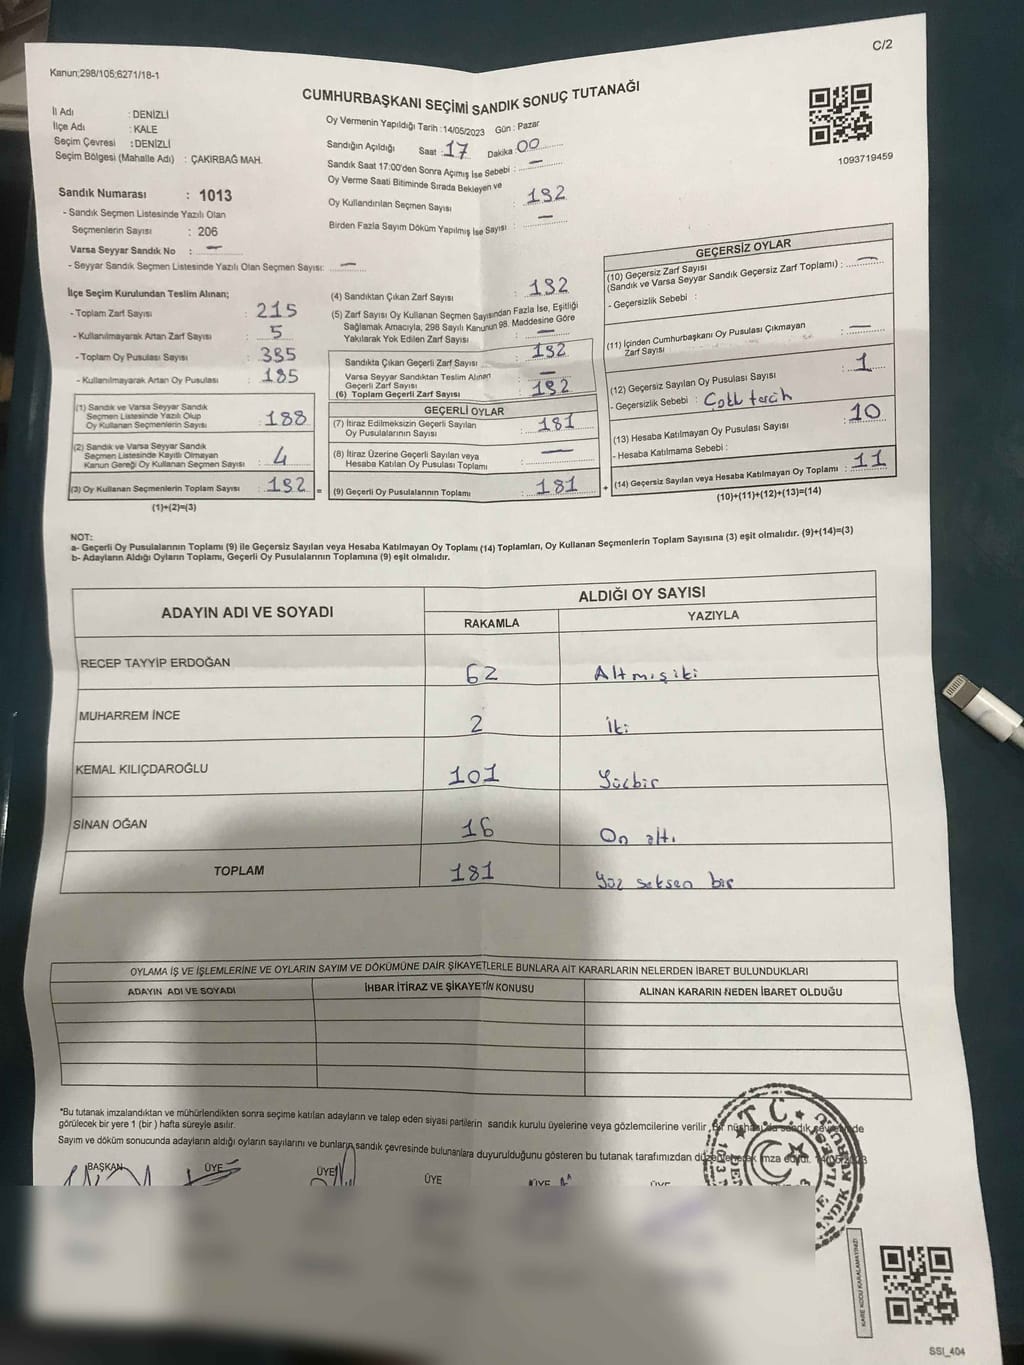 C/2
Kanun;298/105;6271/18-1
CUMHURBAŞKANI SEÇİMİ SANDIK SONUÇ TUTANAĞI
İl Adı : DENİZLİ
İlçe Adı : KALE
Seçim Çevresi : DENİZLİ
Seçim Bölgesi (Mahalle Adı) : ÇAKIRBAĞ MAH.
Oy Vermenin Yapıldığı Tarih :14/05/2023 Gün : Pazar
Sandığın Açıldığı Saat : 17 Dakika : 00
Sandık Saat 17:00'den Sonra Açımış İse Sebebi : —
Oy Verme Saati Bitiminde Sırada Bekleyen ve
Oy Kullandırılan Seçmen Sayısı : 192
Birden Fazla Sayım Döküm Yapılmış İse Sayısı : —
1093719459
Sandık Numarası : 1013
- Sandık Seçmen Listesinde Yazılı Olan
Seçmenlerin Sayısı : 206
Varsa Seyyar Sandık No : —
- Seyyar Sandık Seçmen Listesinde Yazılı Olan Seçmen Sayısı: —
İlçe Seçim Kurulundan Teslim Alınan;
- Toplam Zarf Sayısı : 215
- Kullanılmayarak Artan Zarf Sayısı : 5
- Toplam Oy Pusulası Sayısı : 385
- Kullanılmayarak Artan Oy Pusulası : 185
(1) Sandık ve Varsa Seyyar Sandık
Seçmen Listesinde Yazılı Olup
Oy Kullanan Seçmenlerin Sayısı : 188
(2) Sandık ve Varsa Seyyar Sandık
Seçmen Listesinde Kayıtlı Olmayan
Kanun Gereği Oy Kullanan Seçmen Sayısı : 4
(3) Oy Kullanan Seçmenlerin Toplam Sayısı : 192 =
(1)+(2)=(3)
(4) Sandıktan Çıkan Zarf Sayısı : 192
(5) Zarf Sayısı Oy Kullanan Seçmen Sayısından Fazla İse, Eşitliği
Sağlamak Amacıyla, 298 Sayılı Kanunun 98. Maddesine Göre
Yakılarak Yok Edilen Zarf Sayısı : —
Sandıkta Çıkan Geçerli Zarf Sayısı : 192
Varsa Seyyar Sandıktan Teslim Alınan
Geçerli Zarf Sayısı : —
(6) Toplam Geçerli Zarf Sayısı : 192
GEÇERLİ OYLAR
(7) İtiraz Edilmeksizin Geçerli Sayılan
Oy Pusulalarının Sayısı : 181
(8) İtiraz Üzerine Geçerli Sayılan veya
Hesaba Katılan Oy Pusulası Toplamı : —
(9) Geçerli Oy Pusulalarının Toplamı : 181 +
GEÇERSİZ OYLAR
(10) Geçersiz Zarf Sayısı
(Sandık ve Varsa Seyyar Sandık Geçersiz Zarf Toplamı) : —
- Geçersizlik Sebebi :
(11) İçinden Cumhurbaşkanı Oy Pusulası Çıkmayan
Zarf Sayısı : —
(12) Geçersiz Sayılan Oy Pusulası Sayısı : 1
- Geçersizlik Sebebi : Çoklu tercih
(13) Hesaba Katılmayan Oy Pusulası Sayısı : 10
- Hesaba Katılmama Sebebi :
(14) Geçersiz Sayılan veya Hesaba Katılmayan Oy Toplamı : 11
(10)+(11)+(12)+(13)=(14)
NOT:
a- Geçerli Oy Pusulalarının Toplamı (9) ile Geçersiz Sayılan veya Hesaba Katılmayan Oy Toplamı (14) Toplamları, Oy Kullanan Seçmenlerin Toplam Sayısına (3) eşit olmalıdır. (9)+(14)=(3)
b- Adayların Aldığı Oyların Toplamı, Geçerli Oy Pusulalarının Toplamına (9) eşit olmalıdır.
ADAYIN ADI VE SOYADI ALDIĞI OY SAYISI
RAKAMLA YAZIYLA
RECEP TAYYİP ERDOĞAN 62 Altmışiki
MUHARREM İNCE 2 İki
KEMAL KILIÇDAROĞLU 101 Yüzbir
SİNAN OĞAN 16 On altı
TOPLAM 181 Yüz seksen bir
OYLAMA İŞ VE İŞLEMLERİNE VE OYLARIN SAYIM VE DÖKÜMÜNE DAİR ŞİKAYETLERLE BUNLARA AİT KARARLARIN NELERDEN İBARET BULUNDUKLARI
ADAYIN ADI VE SOYADI İHBAR İTİRAZ VE ŞİKAYETİN KONUSU ALINAN KARARIN NEDEN İBARET OLDUĞU
*Bu tutanak imzalandıktan ve mühürlendikten sonra seçime katılan adayların ve talep eden siyasi partilerin sandık kurulu üyelerine veya gözlemcilerine verilir, Bir nüshası da sandık çevresinde
görülecek bir yere 1 (bir ) hafta süreyle asılır.
Sayım ve döküm sonucunda adayların aldığı oyların sayılarını ve bunların sandık çevresinde bulunanlara duyurulduğunu gösteren bu tutanak tarafımızdan düzenlenerek imza edildi. 14/05/2023
BAŞKAN ÜYE ÜYE ÜYE ÜYE ÜYE
T.C.
1013
KARE KODU KARALAMAYINIZ!
SSI_404